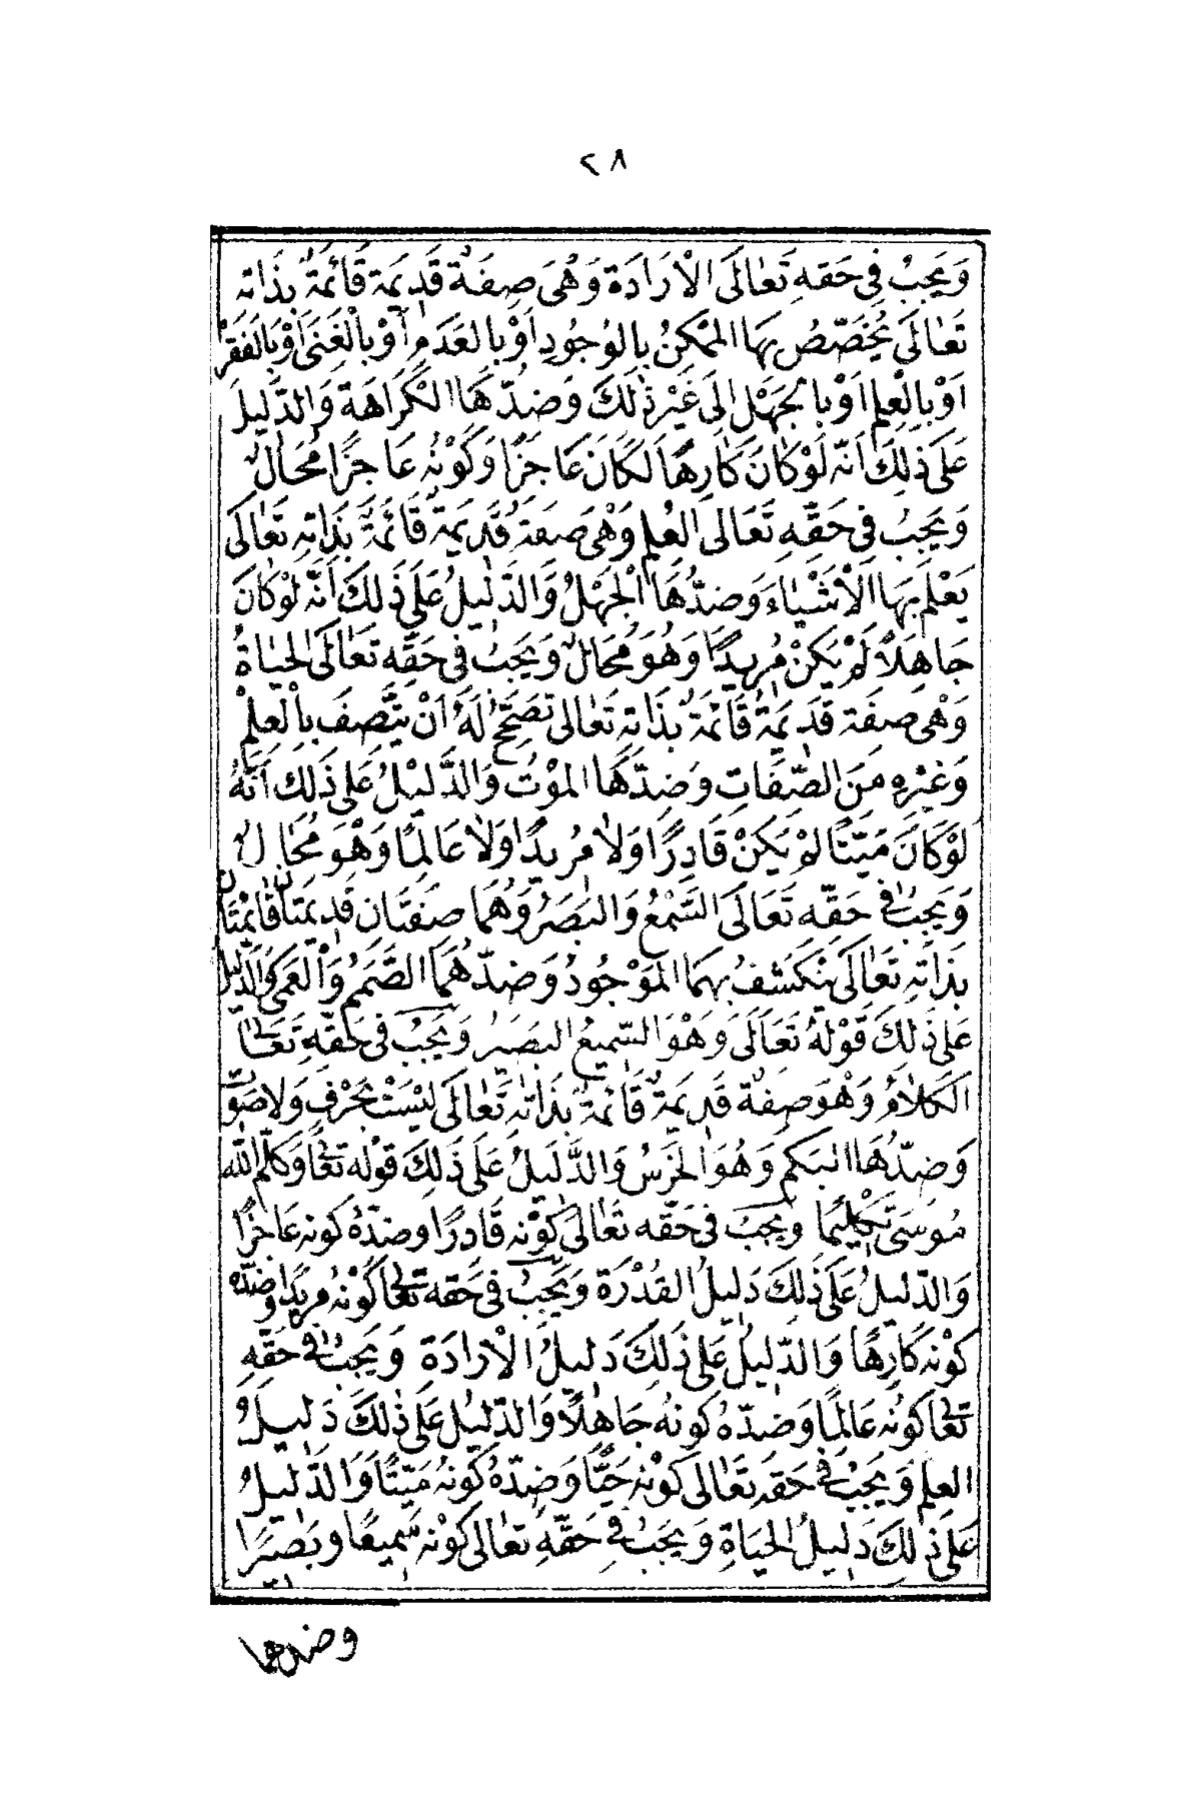 ٢٨
وَيَجِبُ فِي حَقِّهِ تَعَالَى الْإِرَادَة وَهِيَ صِفَةٌ قَدِيمَة قَائِمَةٌ بِذَاتِهِ
تَعَالَى يُخَصِّصُ بِهَا الْمُمْكِنُ بِالْوُجُودِ أَوْ بِالْعَدَمِ أَوْ بِالْغِنَى أَوْ بِالْفَقْرِ
أَوْ بِالْعِلْمِ أَوْ بِالْجَهْلِ إِلَى غَيْرِ ذَلِكَ وَضِدُّهَا الْكَرَاهَة وَالدَّلِيلُ
عَلَى ذَلِكَ أَنَّهُ لَوْ كَانَ كَارِهًا لَكَانَ عَاجِزًا وَكَوْنُهُ عَاجِزًا مُحَالٌ
وَيَجِبُ فِي حَقِّهِ تَعَالَى الْعِلْمُ وَهِيَ صِفَةٌ قَدِيمَةٌ قَائِمَةٌ بِذَاتِهِ تَعَالَى
يَعْلَمُ بِهَا الْأَشْيَاءَ وَضِدُّهَا الْجَهْلُ وَالدَّلِيلُ عَلَى ذَلِكَ أَنَّهُ لَوْ كَانَ
جَاهِلًا لَمْ يَكُنْ مُرِيدًا وَهُوَ مُحَالٌ وَيَجِبُ فِي حَقِّهِ تَعَالَى الْحَيَاةُ
وَهِيَ صِفَة قَدِيمَةٌ قَائِمَةٌ بِذَاتِهِ تَعَالَى تُصَحِّحُ لَهُ أَنْ يَتَّصِفَ بِالْعِلْمِ
وَغَيْرِهِ مِنَ الصِّفَاتِ وَضِدُّهَا الْمَوْتُ وَالدَّلِيْلُ عَلَى ذَلِكَ أَنَّهُ
لَوْ كَانَ مَيِّتًا لَمْ يَكُنْ قَادِرًا وَلَا مُرِيدًا وَلَا عَالِمًا وَهُوَ مُحَالٌ
وَيَجِبُ فِي حَقِّهِ تَعَالَى السَّمْعُ وَالْبَصَرُ وَهُمَا صِفَتَانِ قَدِيمَتَانِ قَائِمَتَانِ
بِذَاتِهِ تَعَالَى يَنْكَشِفُ بِهِمَا الْمَوْجُودُ وَضِدُّهُمَا الصَّمَمُ وَالْعَمَى وَالدَّلِيلُ
عَلَى ذَلِكَ قَوْلُهُ تَعَالَى وَهُوَ السَّمِيعُ الْبَصِيرُ وَيَجِبُ فِي حَقِّهِ تَعَالَى
الْكَلَامُ وَهُوَ صِفَةٌ قَدِيمَةٌ قَائِمَةٌ بِذَاتِهِ تَعَالَى لَيْسَتْ بِحَرْفٍ وَلَا صَوْتٍ
وَضِدُّهَا الْبَكَمُ وَهُوَ الْخَرَسُ وَالدَّلِيلُ عَلَى ذَلِكَ قَوْلُه تَعَالَى وَكَلَّمَ اللهُ
مُوسَى تَكْلِيْمًا وَيَجِبُ فِي حَقِّهِ تَعَالَى كَوْنُه قَادِرًا وَضِدُّهُ كَونُه عَاجِزًا
وَالدَّلِيلُ عَلَى ذَلِكَ دَلِيلُ الْقُدْرَة وَيَجِبُ فِي حَقِّه تَعَالَى كَوْنُهُ مُرِيدًا وَضِدُّه
كَوْنُه كَارِهًا وَالدَّلِيلُ عَلَى ذَلِكَ دَلِيلُ الْإِرَادَةِ وَيَجِبُ فِي حَقِّهِ
تَعَالَى كَوْنُه عَالِمًا وَضِدُّهُ كَونُهُ جَاهِلًا وَالدَّلِيلُ عَلَى ذَلِكَ دَلِيلُ
الْعِلْمِ وَيَجِبُ فِي حَقِّهِ تَعَالَى كَوْنُه حَيًّا وَضِدُّهُ كَوْنُهُ مَيِّتًا وَالدَّلِيلُ
عَلَى ذَلِكَ دَلِيلُ الْحَيَاةِ وَيَجِبُ فِي حَقِّهِ تَعَالَى كَوْنُه سَمِيعًا وَبَصِيْرًا
وضدهما